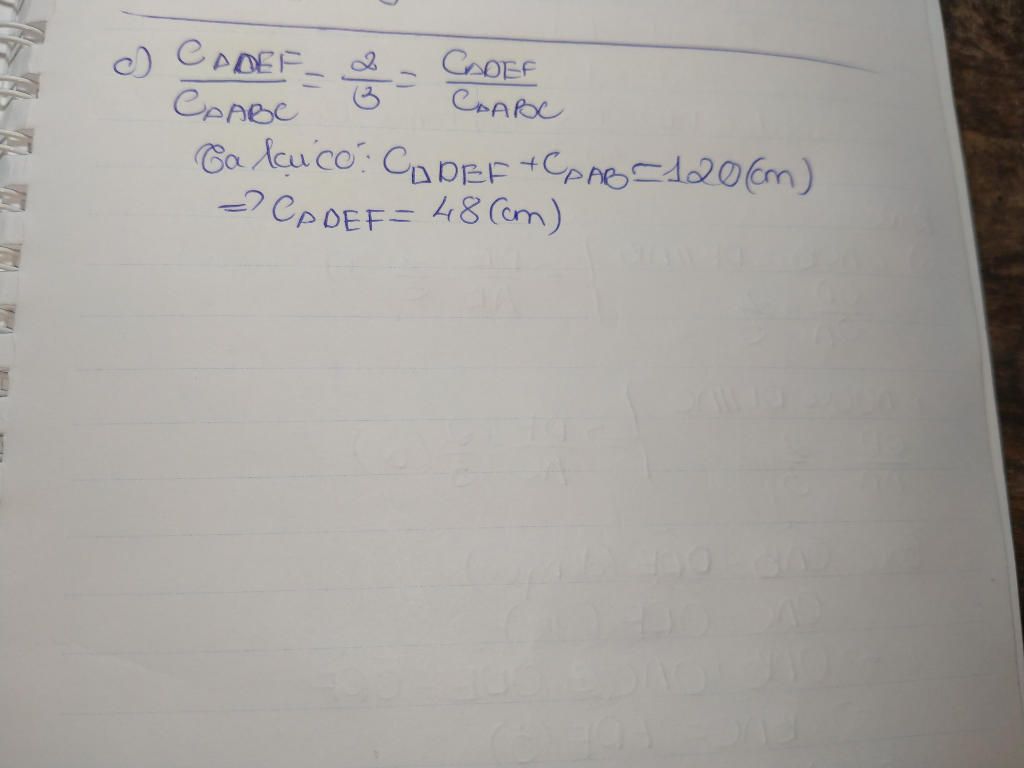 c) C△DEF/C△ABC = 2/3 = C△DEF/C△ABC
Ta lại có: C△DEF + C△AB = 120 (cm)
=> C△DEF = 48 (cm)